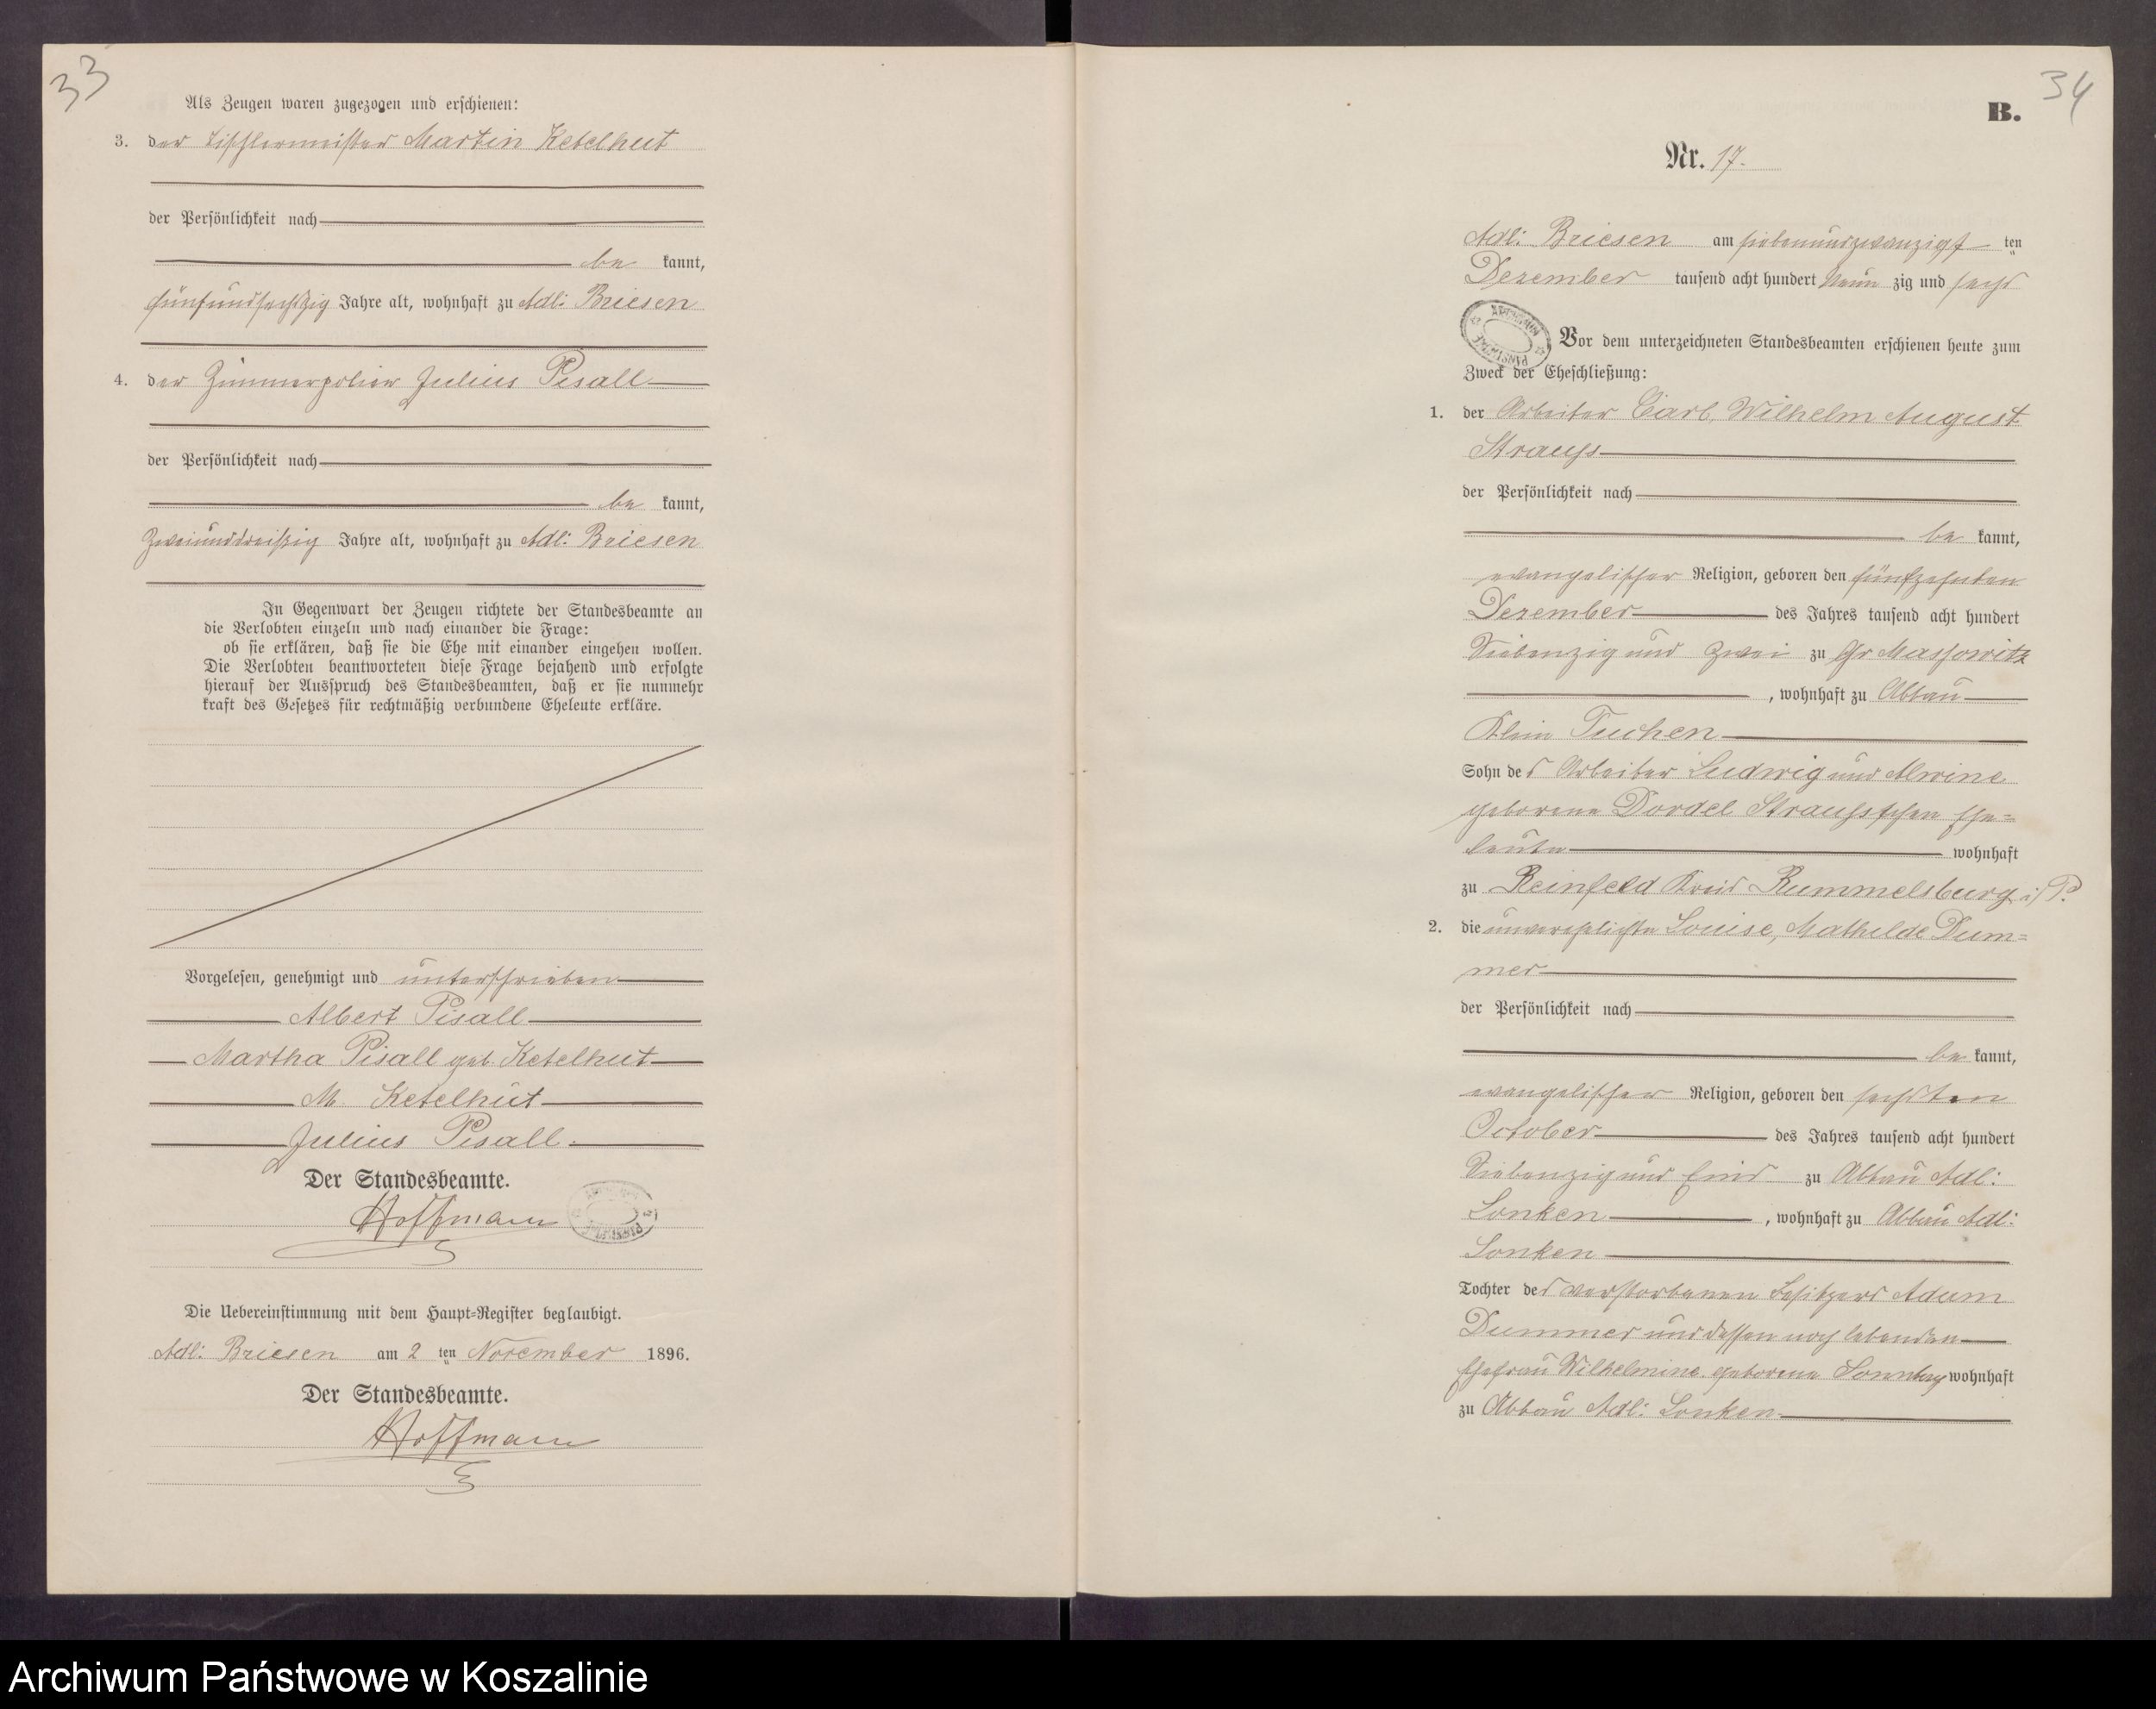 33
Als Zeugen waren zugezogen und erschienen:
3. der Tischlermeister Martin Ketelhut
der Persönlichkeit nach
be kannt,
fünfundsechszig Jahre alt, wohnhaft zu Adl: Briesen
4. der Zimmerpolier Julius Pisall
der Persönlichkeit nach
be kannt,
zweiunddreißig Jahre alt, wohnhaft zu Adl: Briesen
In Gegenwart der Zeugen richtete der Standesbeamte an
die Verlobten einzeln und nach einander die Frage:
ob sie erklären, daß sie die Ehe mit einander eingehen wollen.
Die Verlobten beantworteten diese Frage bejahend und erfolgte
hierauf der Ausspruch des Standesbeamten, daß er sie nunmehr
kraft des Gesetzes für rechtmäßig verbundene Eheleute erkläre.
Vorgelesen, genehmigt und unterschrieben
Albert Pisall
Martha Pisall geb. Ketelhut
M. Ketelhut
Julius Pisall
Der Standesbeamte.
Hoffmann
Die Uebereinstimmung mit dem Haupt=Register beglaubigt.
Adl: Briesen am 2 ten November 1896.
Der Standesbeamte.
Hoffmann
34
B.
Nr. 17.
Adl: Briesen am siebenundzwanzigst ten
Dezember tausend acht hundert Neun zig und sechs
ARCHIWUM PAŃSTWOWE
Vor dem unterzeichneten Standesbeamten erschienen heute zum
Zweck der Eheschließung:
1. der Arbeiter Carl, Wilhelm August
Strauss
der Persönlichkeit nach
be kannt,
evangelischer Religion, geboren den fünfzehnten
Dezember des Jahres tausend acht hundert
Siebenzig und zwei zu Gr Massowitz
, wohnhaft zu Abbau
Klein Tuchen
Sohn des Arbeiter Ludwig und Alwine
geborene Dordel Strauss'schen Ehe=
leute wohnhaft
zu Reinfeld Kreis Rummelsburg i/P.
2. die unverehelichte Louise, Mathilde Dum=
mer
der Persönlichkeit nach
be kannt,
evangelischer Religion, geboren den sechsten
October des Jahres tausend acht hundert
Siebenzig und Eins zu Abbau Adl:
Lonken, wohnhaft zu Abbau Adl:
Lonken
Tochter des verstorbenen Besitzers Adam
Dummer und dessen noch lebenden
Ehefrau Wilhelmine geborene wohnhaft
zu Abbau Adl: Lonken
Archiwum Państwowe w Koszalinie